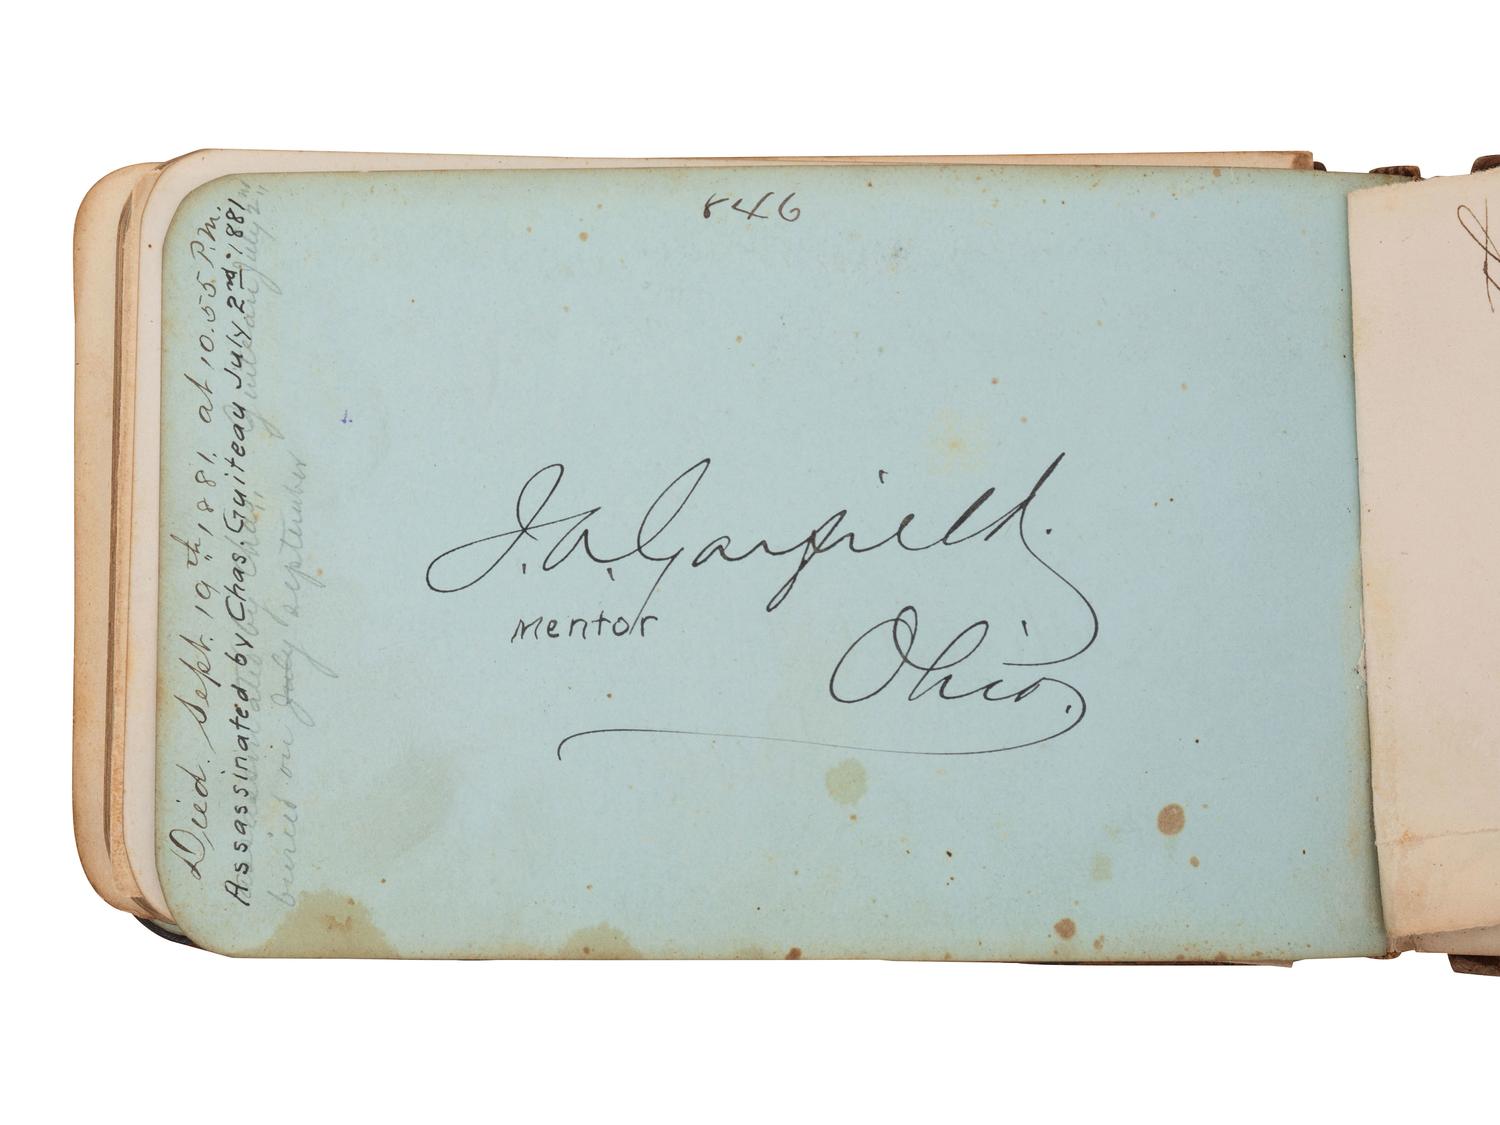 846
J. A. Garfield.
Mentor
Ohio.
Died. Sept. 19th 1881. at 10.55 P.M.
Assassinated by Chas. Guiteau July 2nd 1881
July 2nd
buried on July september